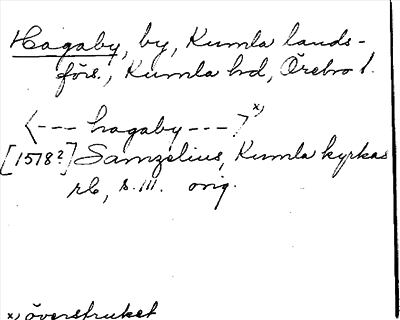 Hagaby, by, Kumla lands-
förs., Kumla hd, Örebro l.
<--- hagaby ---> x)
[1578?] Samzelius, Kumla kyrkas
rb, s. 111. orig.
x) överstruket